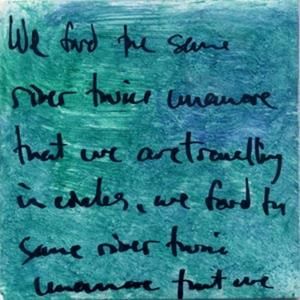 We ford the same
river twice unaware
that we are travelling
in circles, we ford th
same river twice
unaware that we